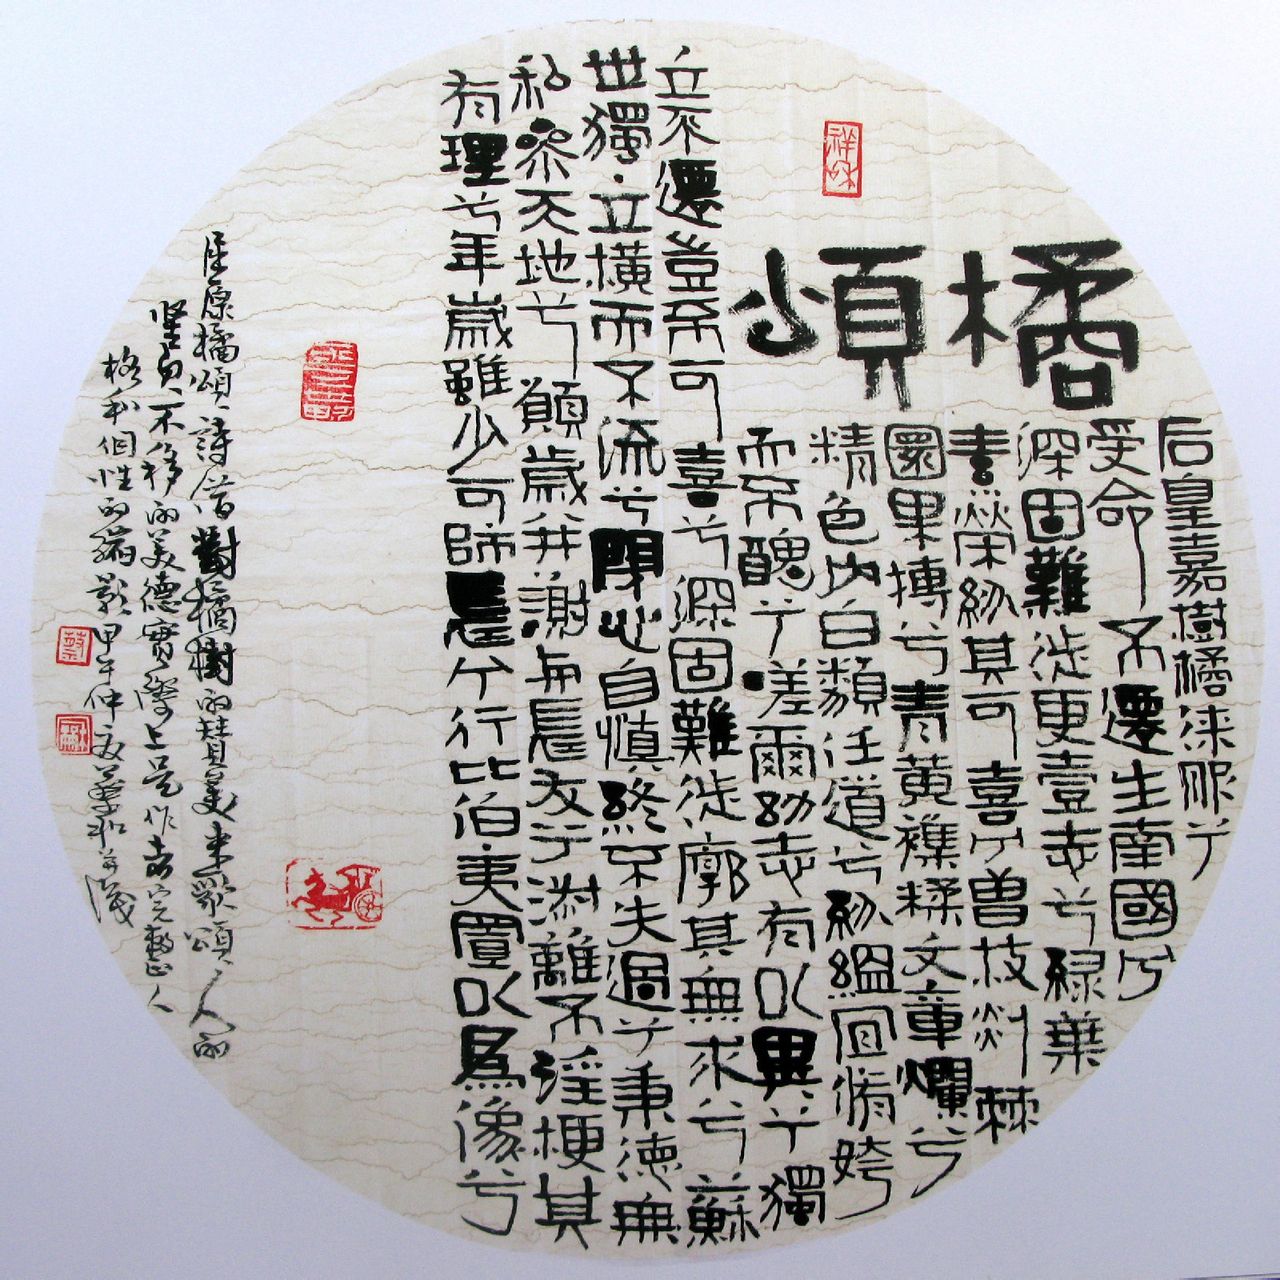 橘頌
后皇嘉樹橘徠服兮
受命不遷生南國兮
深固難徙更壹志兮綠葉
素榮紛其可喜兮曾枝剡棘
圜果摶兮青黃襍糅文章爛兮
精色内白類任道兮紛緼宜脩姱
而不醜兮嗟爾幼志有以異兮獨
立不遷豈不可喜兮深固難徙廓其無求兮蘇
世獨立橫而不流兮閉心自慎終不失過兮秉德無
私參天地兮願歲并謝與長友兮淑離不淫梗其
有理兮年歲雖少可師長兮行比伯夷置以為像兮
屈原橘頌詩借對橘樹的贊美来歌頌人的
坚貞不移的美德實際上是作者完整人
格和個性的縮影甲午仲夏
祥和